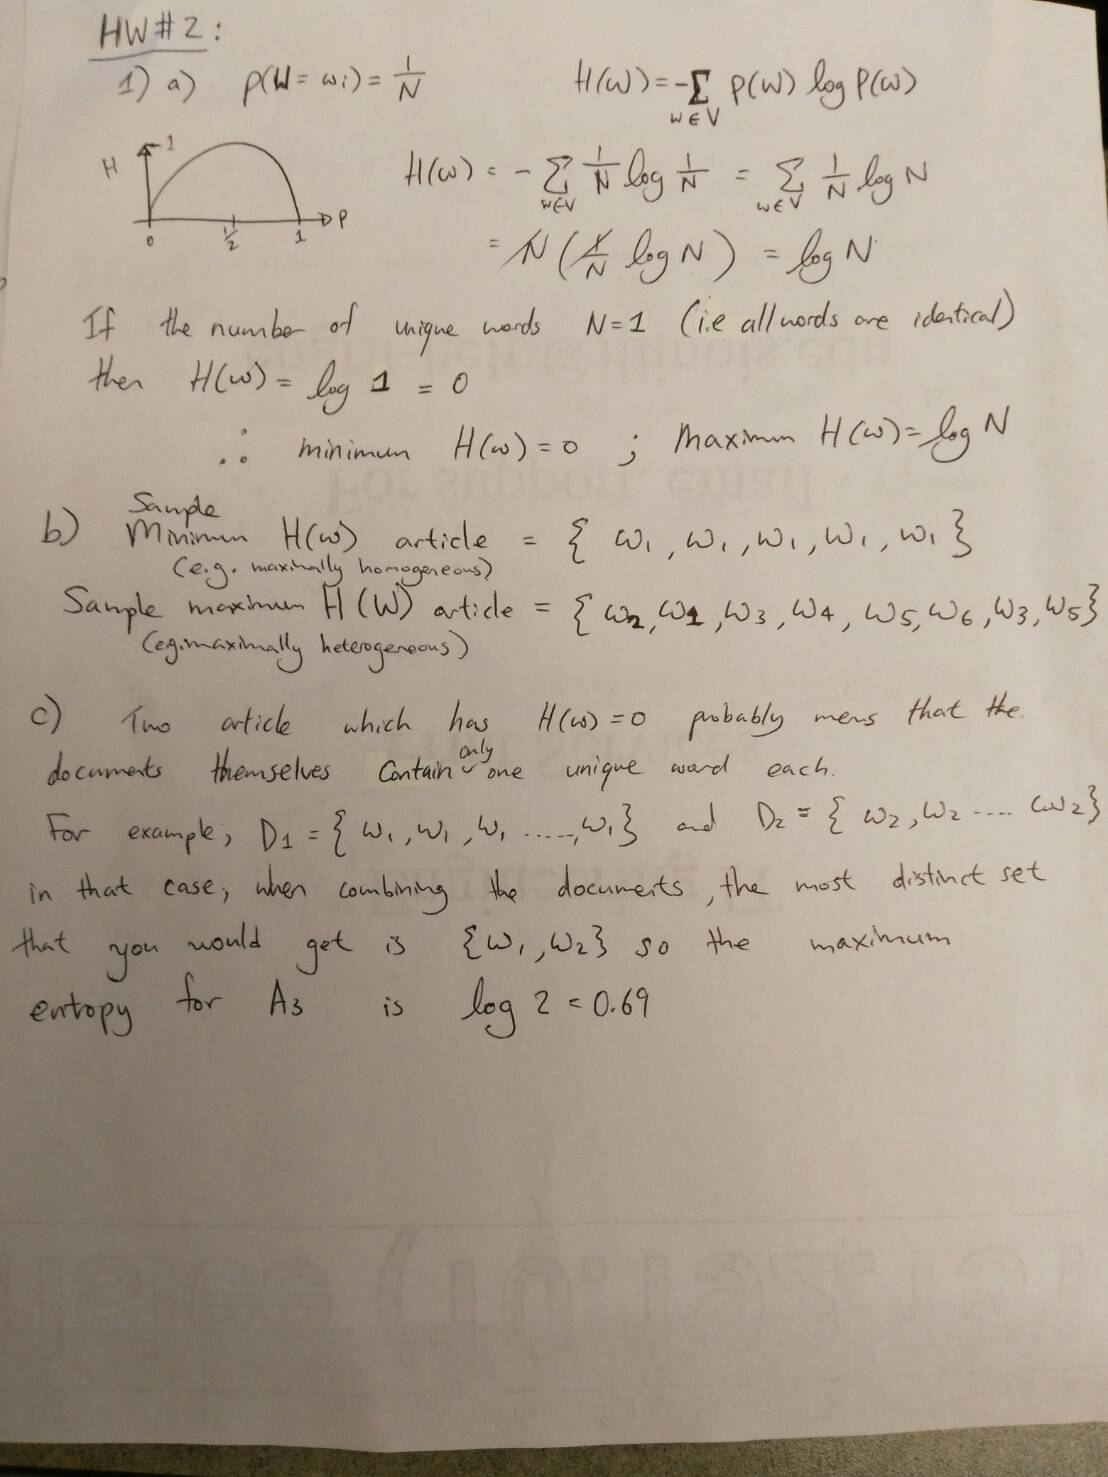 HW#2:
1) a) p(W = wi) = 1/N H(w) = -Σ w∈V P(w) log P(w)
H 1 0 1/2 1 P
H(w) = - Σ w∈V 1/N log 1/N = Σ w∈V 1/N log N
= N (1/N log N) = log N
If the number of unique words N=1 (i.e all words are identical)
then H(w) = log 1 = 0
∴ minimum H(w) = 0 ; Maximum H(w) = log N
b) Sample Minimum H(w) article = { w1, w1, w1, w1, w1 }
(e.g. maximally homogeneous)
Sample maximum H(W) article = { w2, w1, w3, w4, w5, w6, w3, w5}
(e.g. maximally heterogeneous)
c) Two article which has H(w) = 0 probably mens that the
documents themselves contain only one unique word each.
For example; D1 = { w1, w1, w1 ....., w1} and D2 = { w2, w2 .... w2}
in that case, when combining the documents, the most distinct set
that you would get is {w1, w2} so the maximum
entopy for A3 is log 2 = 0.69